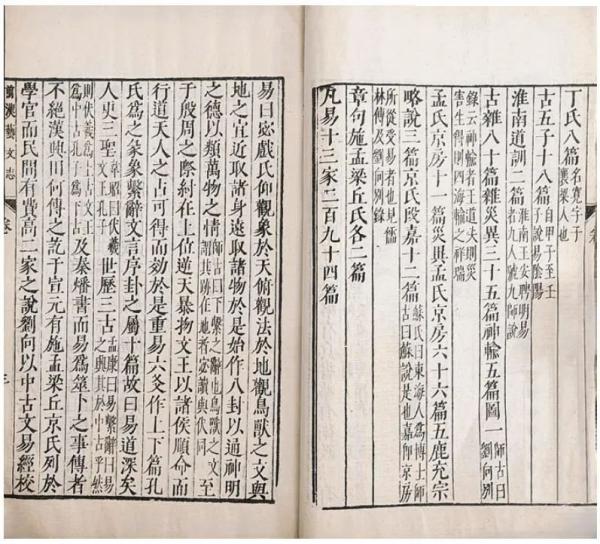 丁氏八篇名寬字子襄梁人也
古五子十八篇自甲子至壬子說易陰陽
淮南道訓二篇淮南王安聘明易者九人號九師說
古雜八十篇雜災異三十五篇神輸五篇圖一師古曰劉向別
錄云神輸者王道失則災害生得則四海輸之祥瑞
孟氏京房十一篇災異孟氏京房六十六篇五鹿充宗
略說三篇京氏段嘉十二篇蘇氏曰東海人爲博士師古曰蘇說是也嘉即京房
所從受易者也見儒林傳及劉向別錄
章句施孟梁丘氏各二篇
凡易十三家二百九十四篇
易曰宓戲氏仰觀象於天俯觀法於地觀鳥獸之文與
地之宜近取諸身遠取諸物於是始作八卦以通神明
之德以類萬物之情師古曰下繫之辭也鳥獸之文謂其跡在地者宓讀與伏同至
于殷周之際紂在上位逆天暴物文王以諸侯順命而
行道天人之占可得而効於是重易六爻作上下篇孔
氏爲之彖象繫辭文言序卦之屬十篇故曰易道深矣
人更三聖韋昭曰伏羲文王孔子世歷三古孟康曰易繫辭曰易之興其於中古乎然
則伏羲爲上古文王爲中古孔子爲下古及秦燔書而易爲筮卜之事傳者
不絕漢興田何傳之訖于宣元有施孟梁丘京氏列於
學官而民間有費高二家之說劉向以中古文易經校
前漢藝文志
三